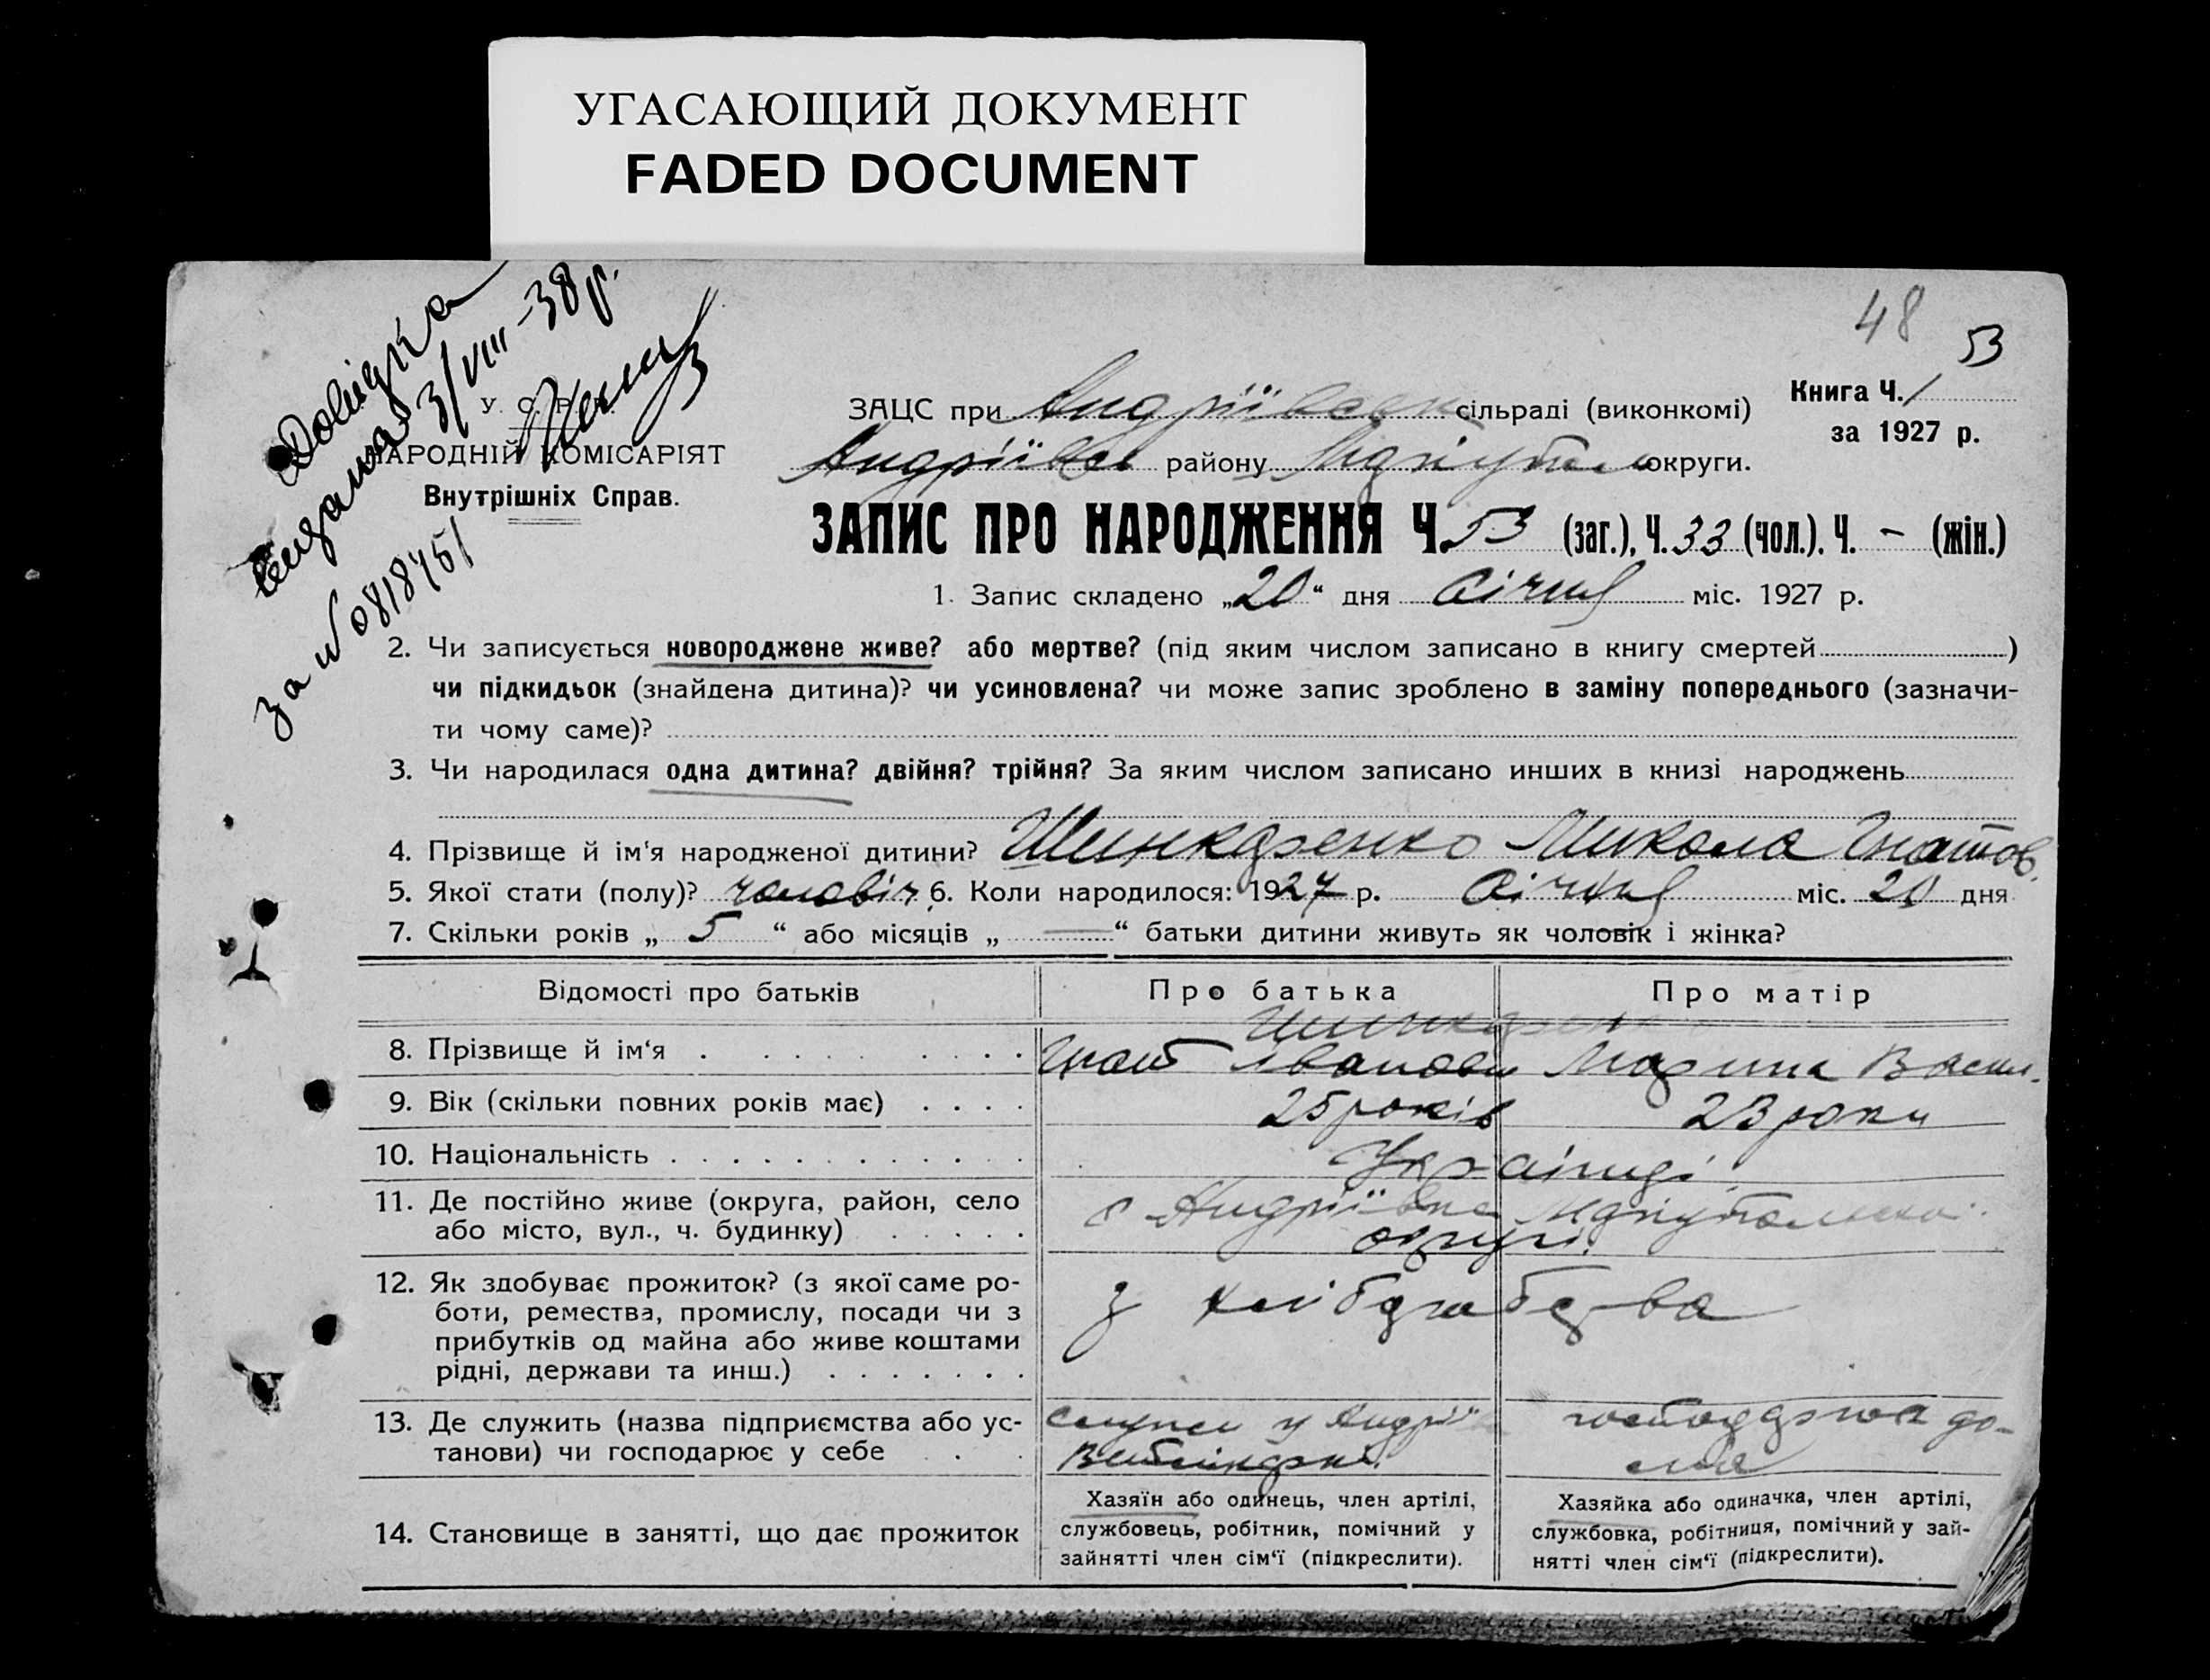 УГАСАЮЩИЙ ДОКУМЕНТ
FADED DOCUMENT
48
53
Довідка
видана 3/VIII-38 р.
за №
У. С. Р. Р.
НАРОДНІЙ КОМІСАРІЯТ
Внутрішніх Справ.
ЗАЦС при Андріївськ сільраді (виконкомі)
Книга Ч. 1
за 1927 р.
Андріївськ району Маріупол округи.
ЗАПИС ПРО НАРОДЖЕННЯ Ч. 53 (заг.), Ч. 33 (чол.). Ч. - (жін.)
1. Запис складено „20“ дня Січня міс. 1927 р.
2. Чи записується новороджене живе? або мертве? (під яким числом записано в книгу смертей)
чи підкидьок (знайдена дитина)? чи усиновлена? чи може запис зроблено в заміну попереднього (зазначи-
ти чому саме)?
3. Чи народилася одна дитина? двійня? трійня? За яким числом записано инших в книзі народжень
4. Прізвище й ім‘я народженої дитини? Шинкаренко Микола Гнатов.
5. Якої стати (полу)? чоловіч. 6. Коли народилося: 1927 р. Січня міс. 20 дня
7. Скільки років „ 5 “ або місяців „ — “ батьки дитини живуть як чоловік і жінка?
Відомості про батьків
Про батька
Про матір
Шинкарен
8. Прізвище й ім‘я
Гнат Іванови
Марина Васил.
9. Вік (скільки повних років має)
25 років
23 роки
10. Національність
Українці
11. Де постійно живе (округа, район, село
або місто, вул., ч. будинку)
с Андріївка Маріупольської
округи
12. Як здобуває прожиток? (з якої саме ро-
боти, ремества, промислу, посади чи з
прибутків од майна або живе коштами
рідні, держави та инш.)
з хліборобства
13. Де служить (назва підприємства або ус-
танови) чи господарює у себе
у Андрії
господарює до-
ма
14. Становище в занятті, що дає прожиток
Хазяїн або одинець, член артілі,
службовець, робітник, помічний у
зайнятті член сім‘ї (підкреслити).
Хазяйка або одиначка, член артілі,
службовка, робітниця, помічний у зай-
нятті член сім‘ї (підкреслити).